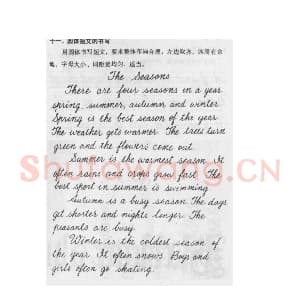 十一、圆体短文的书写
用圆体书写短文，要求整体布局合理，左边取齐，右面有余
地，字母大小、间距要均匀、适当。
The Seasons
There are four seasons in a year
spring, summer, autumn and winter.
Spring is the best season of the year.
The weather gets warmer. The trees turn
green and the flowers come out.
Summer is the warmest season. It
often rains and crops grow fast. The
best sport in summer is swimming.
Autumn is a busy season. The days
get shorter and nights longer. The
peasants are busy.
Winter is the coldest season of
the year. It often snows. Boys and
girls often go skating.